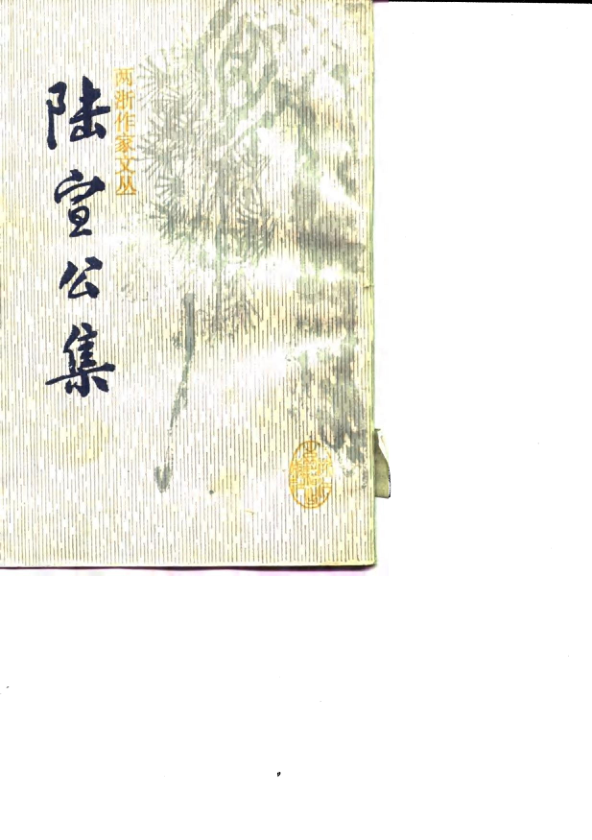 两浙作家文丛
陆宣公集